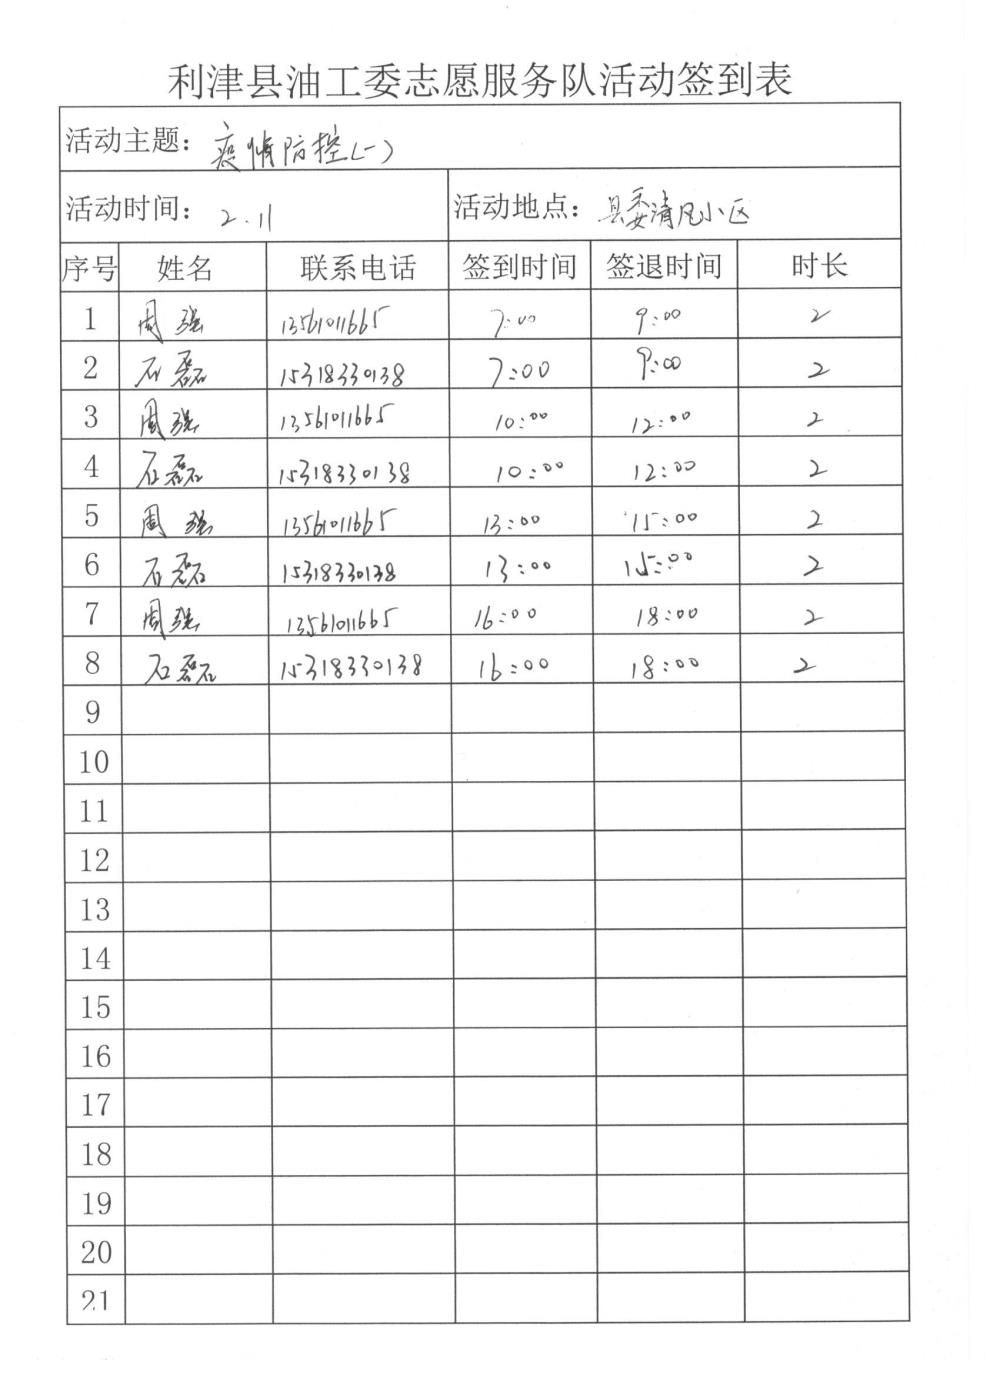 利津县油工委志愿服务队活动签到表
活动主题：疫情防控(一)
活动时间：2.11 活动地点：县委清风小区
序号 姓名 联系电话 签到时间 签退时间 时长
1 周强 13561011665 7:00 9:00 2
2 石磊 15318330138 7:00 9:00 2
3 周强 13561011665 10:00 12:00 2
4 石磊 15318330138 10:00 12:00 2
5 周强 13561011665 13:00 15:00 2
6 石磊 15318330138 13:00 15:00 2
7 周强 13561011665 16:00 18:00 2
8 石磊 15318330138 16:00 18:00 2
9
10
11
12
13
14
15
16
17
18
19
20
21